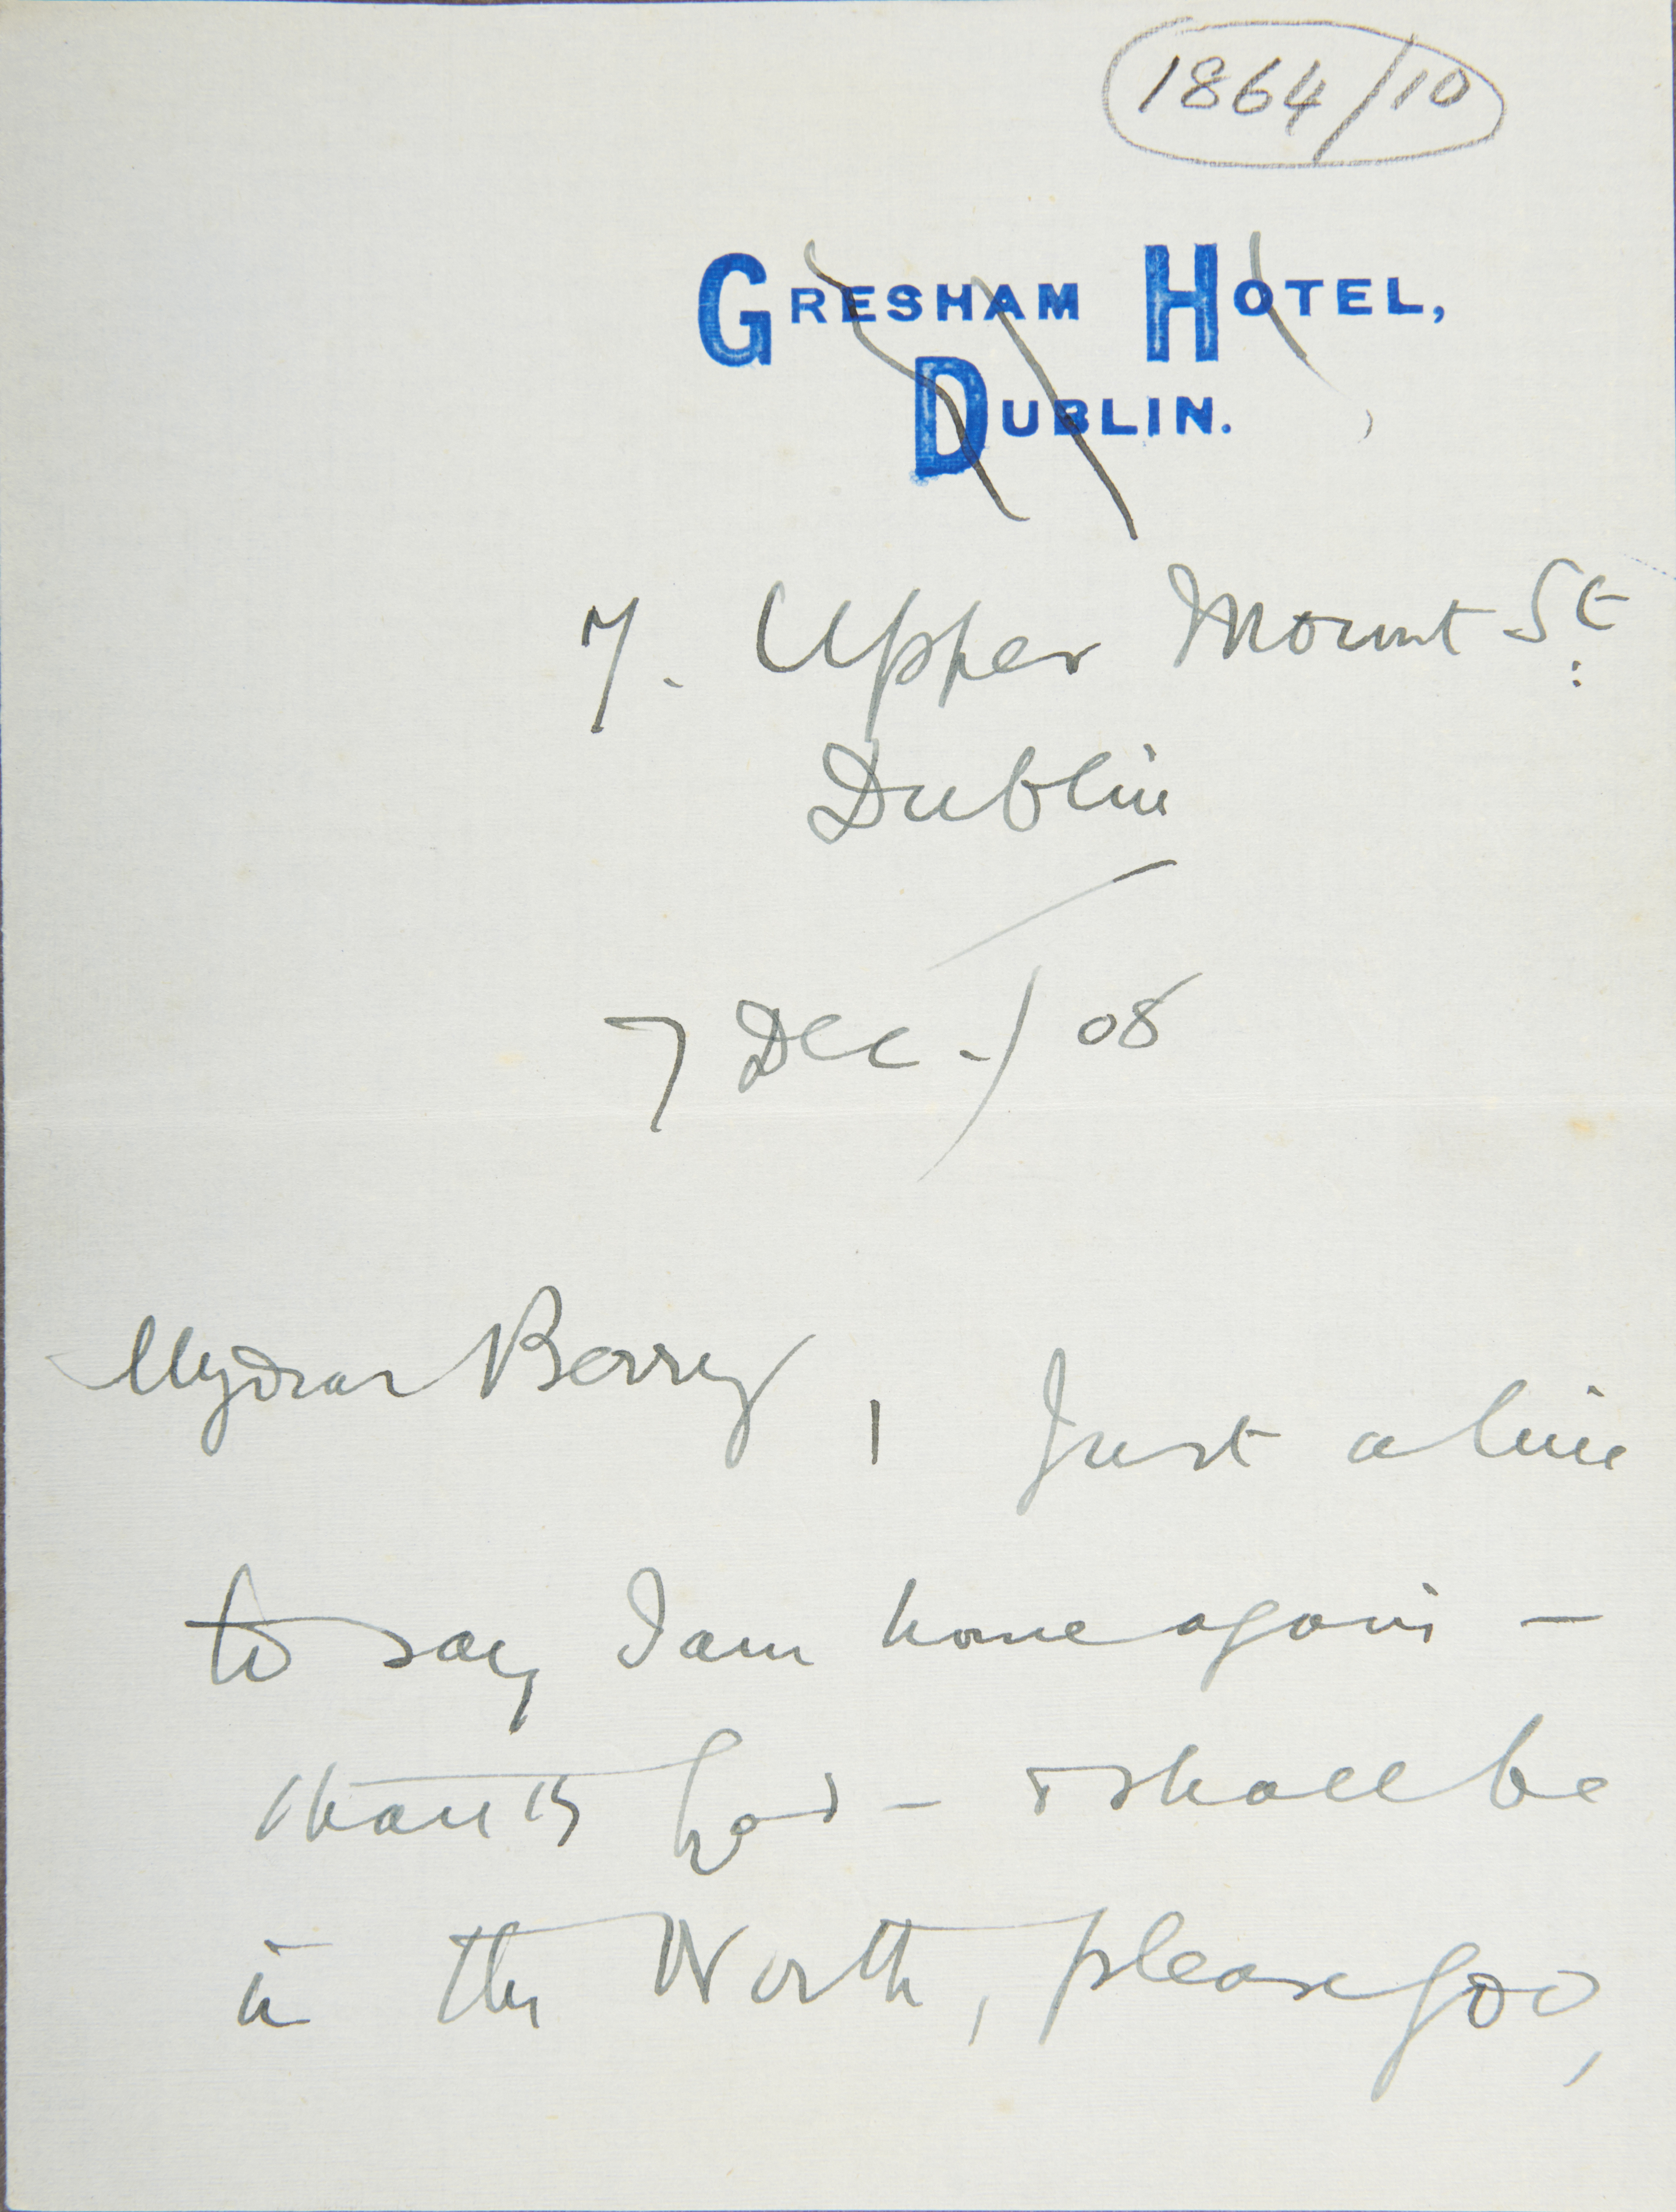 1864/10
GRESHAM HOTEL,
DUBLIN.
7. Upper Mount St:
Dublin
7 Dec./08
My dear Berry, Just a line
to say I am home again —
thank God — & shall be
in the North, please God,